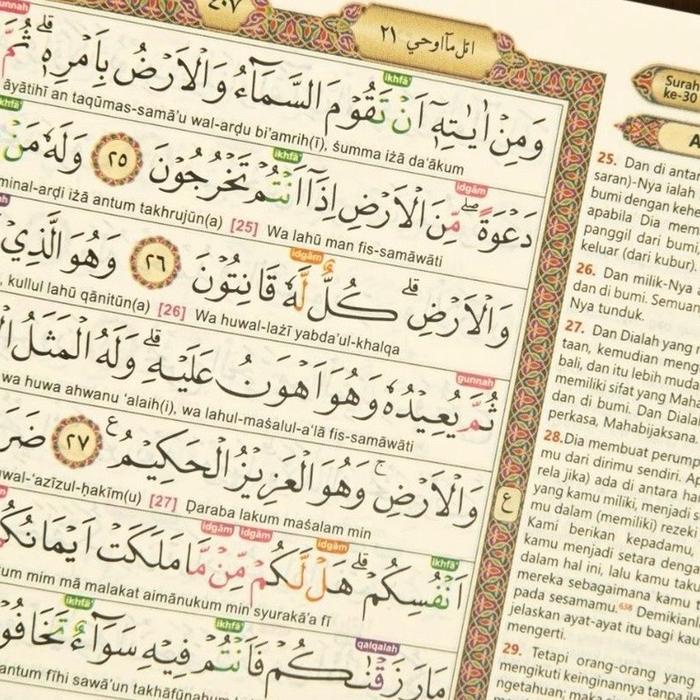 ٤٠٧
اتل مآ اوحي ٢١
وَمِنْ اٰيٰتِهٖٓ اَنْ تَقُوْمَ السَّمَاۤءُ وَالْاَرْضُ بِاَمْرِهٖۗ ثُمَّ
āyātihī an taqūmas-samā'u wal-arḍu bi'amrih(ī), ṡumma iżā da'ākum
دَعْوَةًۖ مِّنَ الْاَرْضِ اِذَآ اَنْتُمْ تَخْرُجُوْنَ ٢٥ وَلَهٗ مَنْ
minal-arḍi iżā antum takhrujūn(a) [25] Wa lahū man fis-samāwāti
وَالْاَرْضِۗ كُلٌّ لَّهٗ قَانِتُوْنَ ٢٦ وَهُوَ الَّذِيْ
, kullul lahū qānitūn(a) [26] Wa huwal-lażī yabda'ul-khalqa
ثُمَّ يُعِيْدُهٗ وَهُوَ اَهْوَنُ عَلَيْهِۗ وَلَهُ الْمَثَلُ
wa huwa ahwanu 'alaih(i), wa lahul-maṡalul-a'lā fis-samāwāti
وَالْاَرْضِۚ وَهُوَ الْعَزِيْزُ الْحَكِيْمُ ࣖ ٢٧ ضَرَ
wal-'azīzul-ḥakīm(u) [27] Ḍaraba lakum maṡalam min
اَنْفُسِكُمْۗ هَلْ لَّكُمْ مِّنْ مَّا مَلَكَتْ اَيْمَانُكُ
kum mim mā malakat aimānukum min syurakā'a fī
مَا رَزَقْنٰكُمْ فَاَنْتُمْ فِيْهِ سَوَاۤءٌ تَخَافُوْ
antum fīhi sawā'un takhāfūnahum
gunnah
ikhfā'
ikhfā'
ikhfā'
idgām
idgām
gunnah
idgām
idgām
idgām
ikhfā'
ikhfā'
ikhfā'
qalqalah
ع
Surah
ke-30
A
25. Dan di antar
saran)-Nya ialah
bumi dengan keh
apabila Dia mem
panggil dari bumi,
keluar (dari kubur).
26. Dan milik-Nya a
dan di bumi. Semua
Nya tunduk.
27. Dan Dialah yang m
taan, kemudian meng
bali, dan itu lebih muda
memiliki sifat yang Maha
dan di bumi. Dan Dialah
perkasa, Mahabijaksana.
28.Dia membuat perump
mu dari dirimu sendiri. Ap
rela jika) ada di antara ha
yang kamu miliki, menjadi s
mu dalam (memiliki) rezeki
Kami berikan kepadamu,
kamu menjadi setara denga
dalam hal ini, lalu kamu taku
mereka sebagaimana kamu t
pada sesamamu.⁶³⁸ Demikianla
jelaskan ayat-ayat itu bagi kau
mengerti.
29. Tetapi orang-orang yang
mengikuti keinginannya tanpa
ngetahuan; maka si